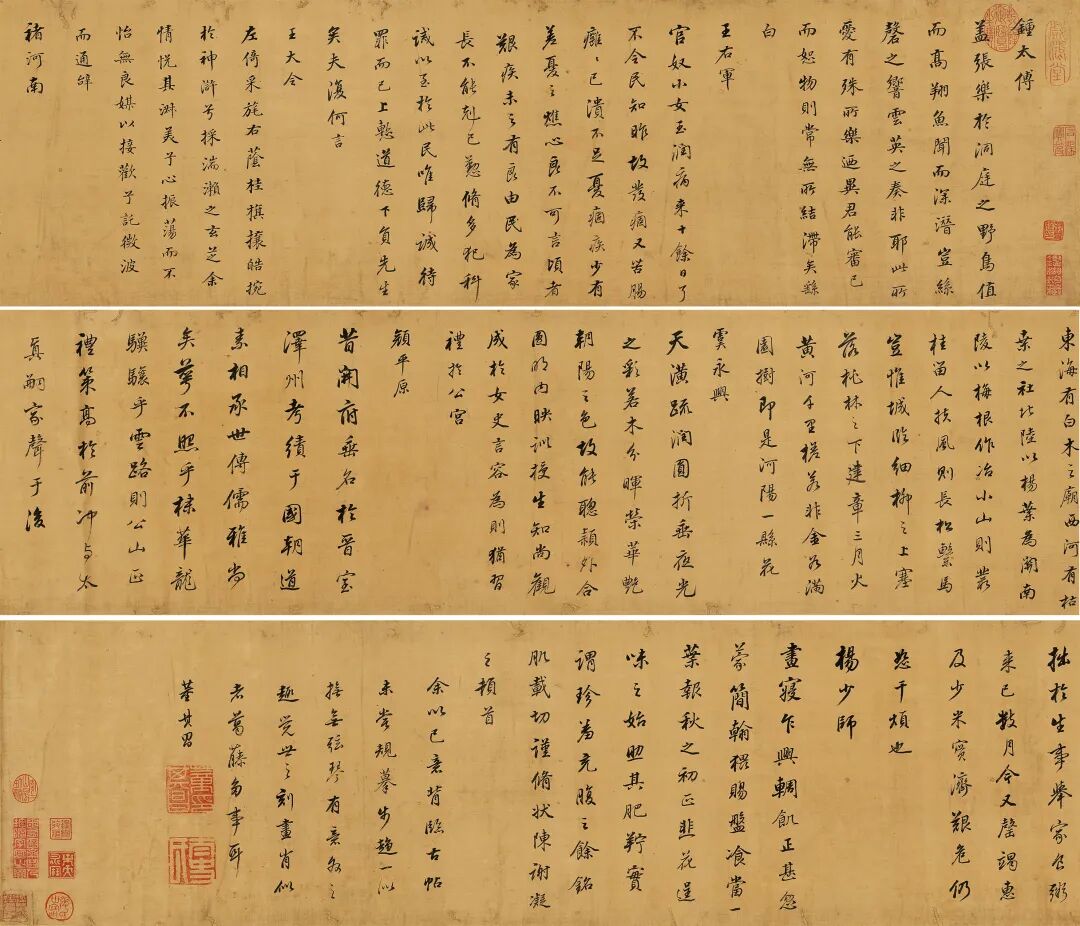 鍾太傅
盖張樂於洞庭之野鳥值
而高翔魚聞而深潛豈絲
磬之響雲英之奏非耶此所
愛有殊所樂迺異君能審己
而恕物則常無所結滯矣繇
白
王右軍
官奴小女玉潤病來十餘日了
不令民知昨故發痼又苦腸
癰癰已潰不足憂痼疾少有
差憂之燋心良不可言頃者
艱疾未之有良由民為家
長不能剋己懃脩多犯科
誡以至於此民唯歸誠待
罪而已上慙道德下負先生
矣夫復何言
王大令
左倚采旄右蔭桂旗攘皓捥
於神滸兮採湍瀨之玄芝余
情悅其淑美兮心振蕩而不
怡無良媒以接歡兮託微波
而通辭
褚河南
東海有白木之廟西河有枯
桒之社北陸以楊葉為關南
陵以梅根作冶小山則叢
桂留人扶風則長松繫馬
豈惟城臨細柳之上塞
落桃林之下建章三月火
黃河千里槎若非金谷滿
園樹即是河陽一縣花
虞永興
天潢疏潤圓折垂夜光
之彩若木分暉榮華艷
朝陽之色故能聰穎外合
圓明內映訓授生知尚觀
成於女史言容為則猶習
禮於公宮
顏平原
昔開府垂名於晉室
澤州考績于國朝道
素相承世傳儒雅尚
矣萼不照乎棣華龍
驥驤乎雲路則公山正
禮策高於前沖与太
真嗣家聲于後
拙於生事舉家食粥
來已數月今又罄竭惠
及少米實濟艱危仍
恕干煩也
楊少師
晝寢乍興輖飢正甚忽
蒙簡翰猥賜盤飡當一
葉報秋之初正韭花逞
味之始助其肥羜實
謂珍羞充腹之餘銘
肌載切謹脩狀陳謝凝
之頓首
余以己意背臨古帖
未嘗規摹步趨一似
撫無弦琴有意外之
趣覺世之刻畫肖似
者葛藤多事耳
董其昌